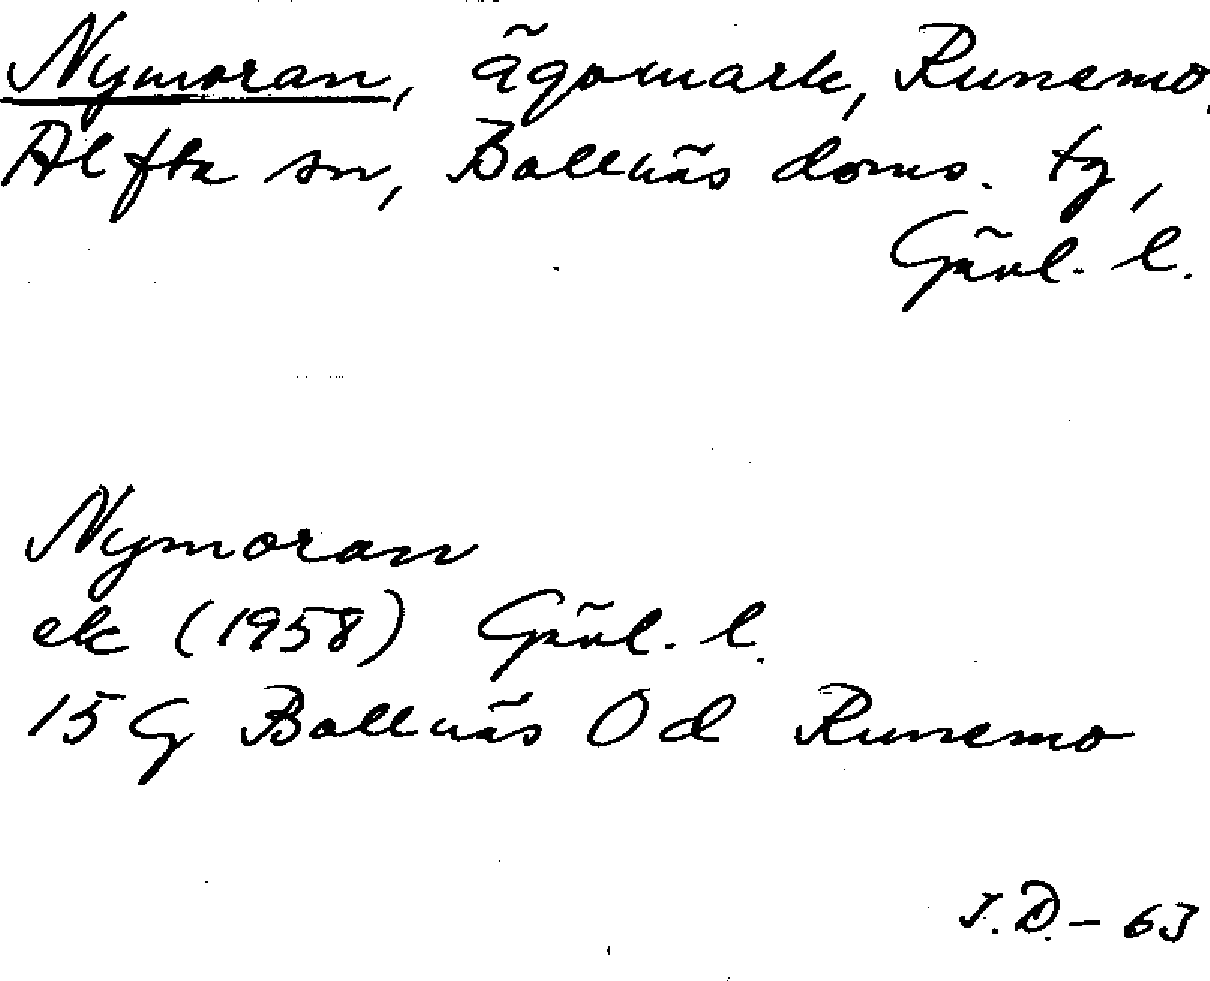 Nymoran, ägomark, Runemo,
Alfta sn, Bollnäs doms. tg,
Gävl. l.
Nymoran
ek (1958) Gävl. l.
15 G Bollnäs 0d Runemo
J.D. - 63